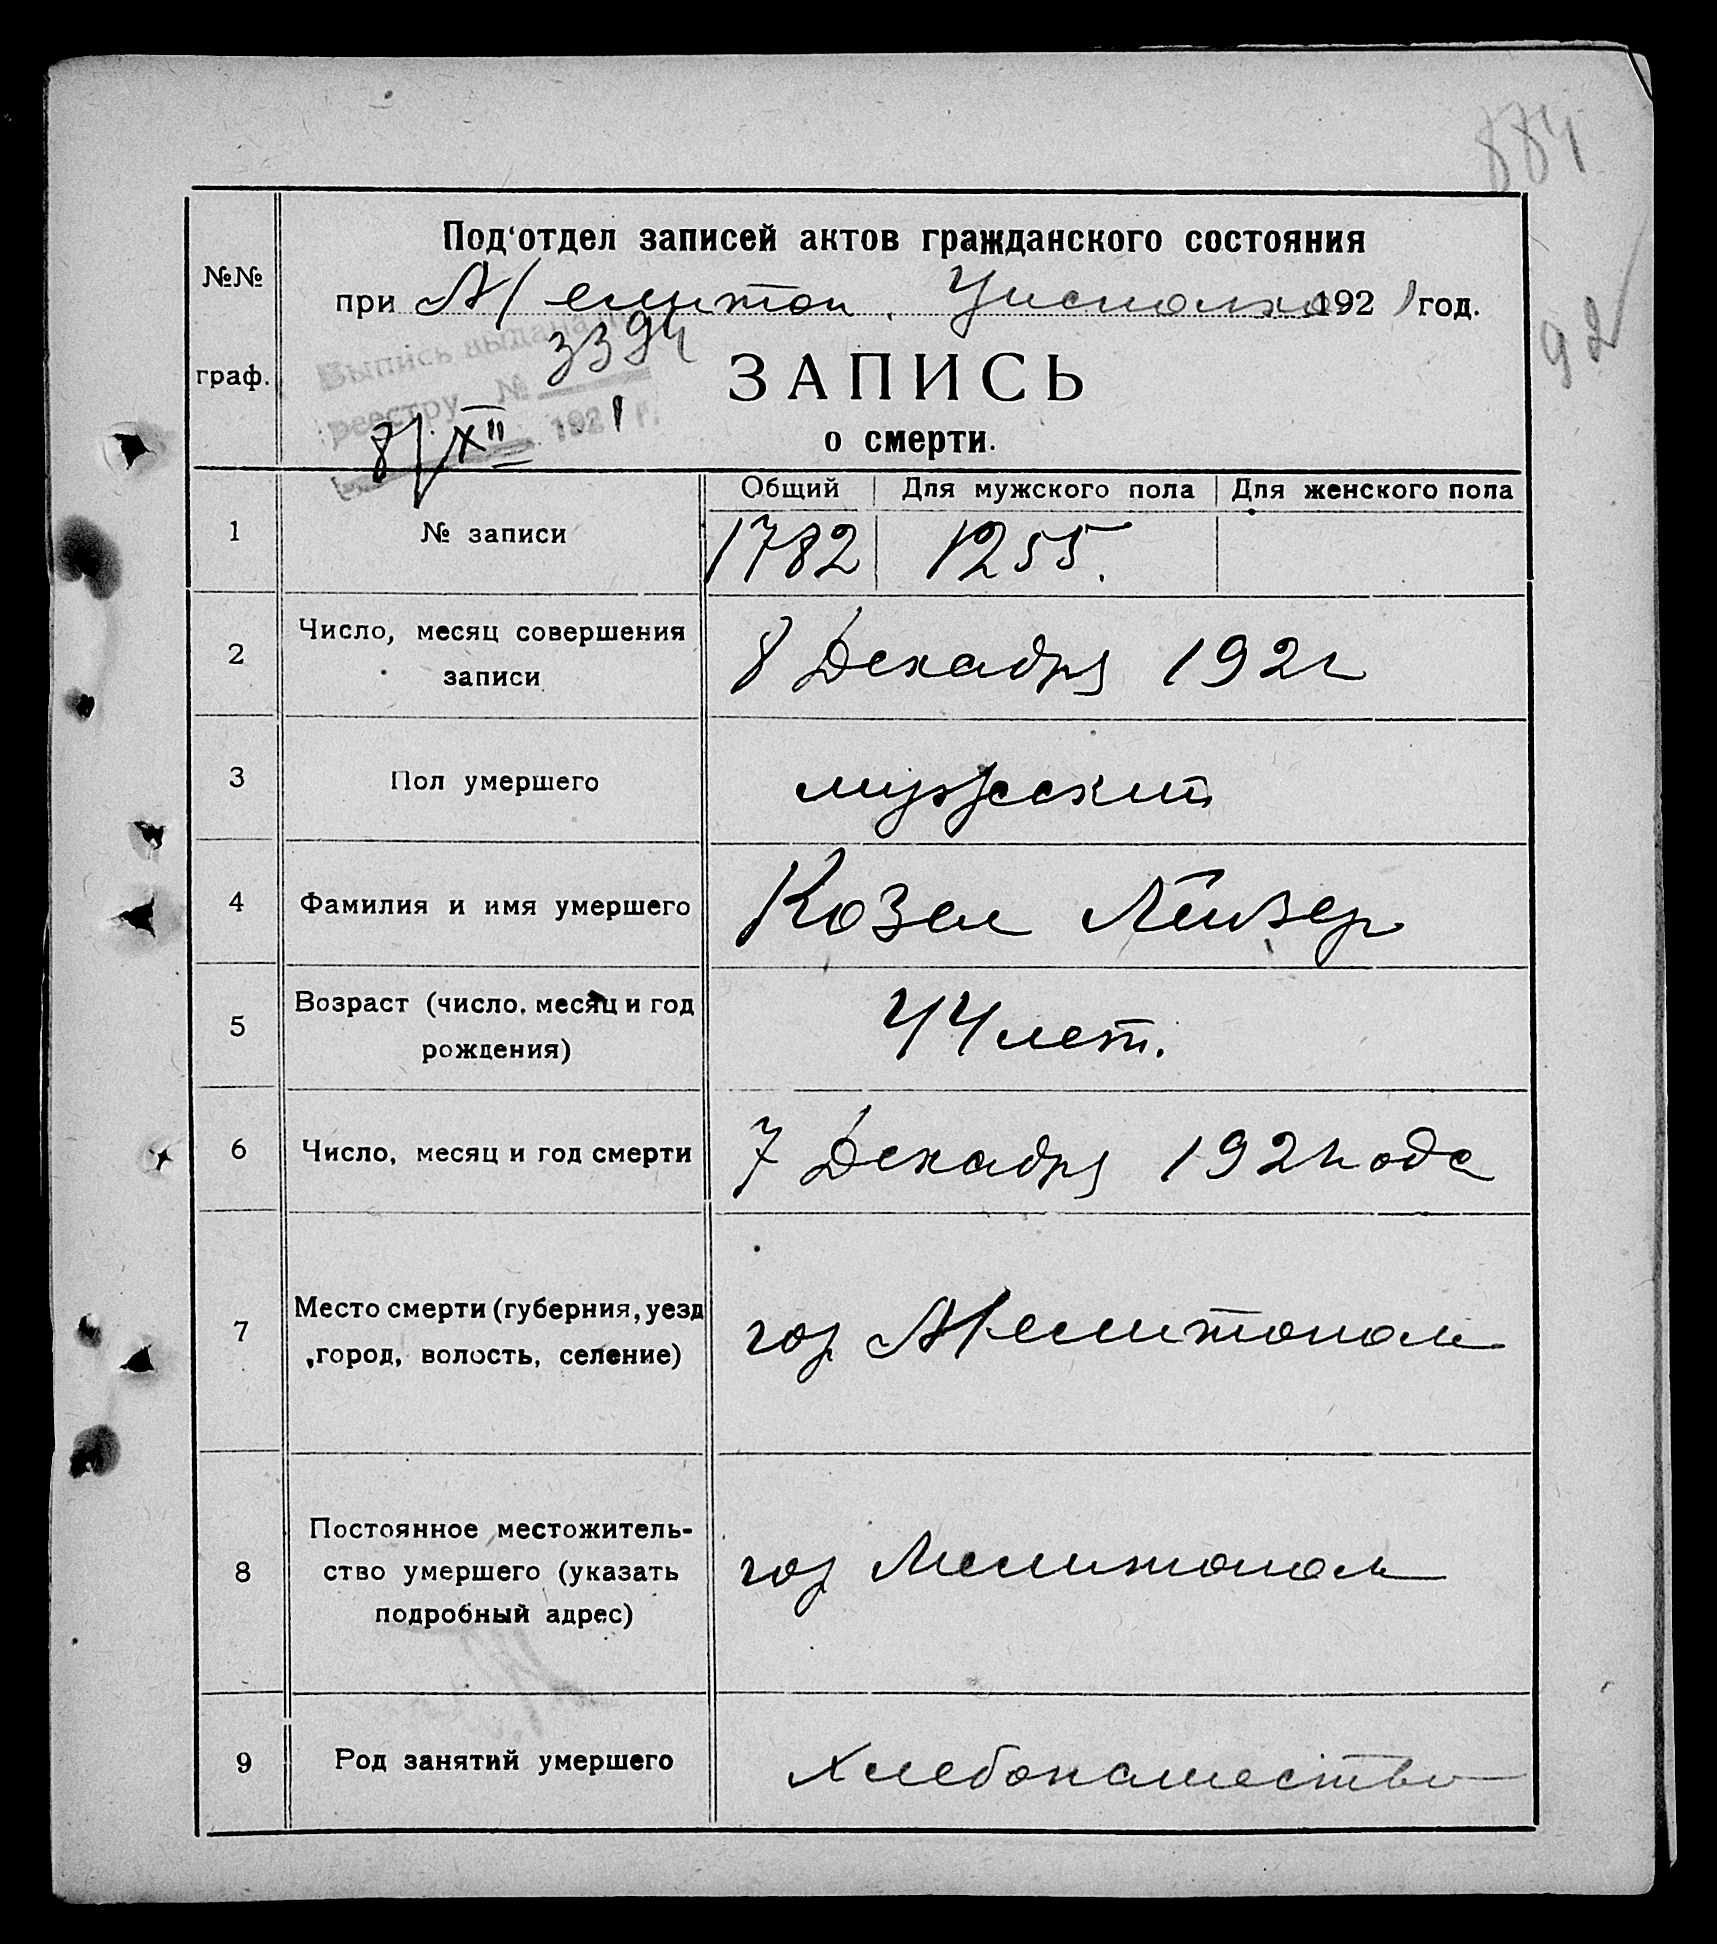 884
Под'отдел записей актов гражданского состояния
при Мелитоп. Уисполко 1921 год.
92
№№
граф.
Выпись выдана
реестру № 3394
8/XII 1921 г.
ЗАПИСЬ
о смерти.
Общий Для мужского пола Для женского пола
1 № записи 1782 1255.
2 Число, месяц совершения
записи
8 Декабря 1921
3 Пол умершего мужской
4 Фамилия и имя умершего Козел Лейзер
5 Возраст (число, месяц и год
рождения)
44 лет.
6 Число, месяц и год смерти 7 Декабря 1921 года
7 Место смерти (губерния, уезд
,город, волость, селение)
гор Мелитополь
8 Постоянное местожитель-
ство умершего (указать
подробный адрес)
гор Мелитополь
9 Род занятий умершего хлебопашество